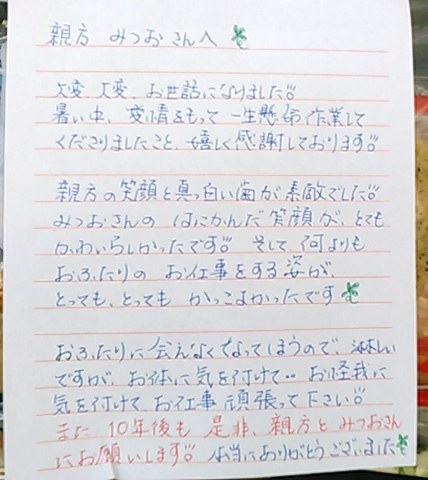 親方 みつおさんへ
大変、大変、お世話になりました!!
暑い中、愛情をもって一生懸命作業して
くださりましたこと、嬉しく感謝しております!!
親方の笑顔と真っ白い歯が素敵でした!!
みつおさんの はにかんだ笑顔が、とても
かわいらしかったです!! そして、何よりも
おふたりの お仕事をする姿が、
とっても、とっても かっこよかったです
おふたりに会えなくなってしまうので、淋しい
ですが、お体に気を付けて・・お怪我に
気を付けて、お仕事頑張って下さい!!
また 10年後も 是非、親方とみつおさん
にお願いします!! 本当にありがとうございました